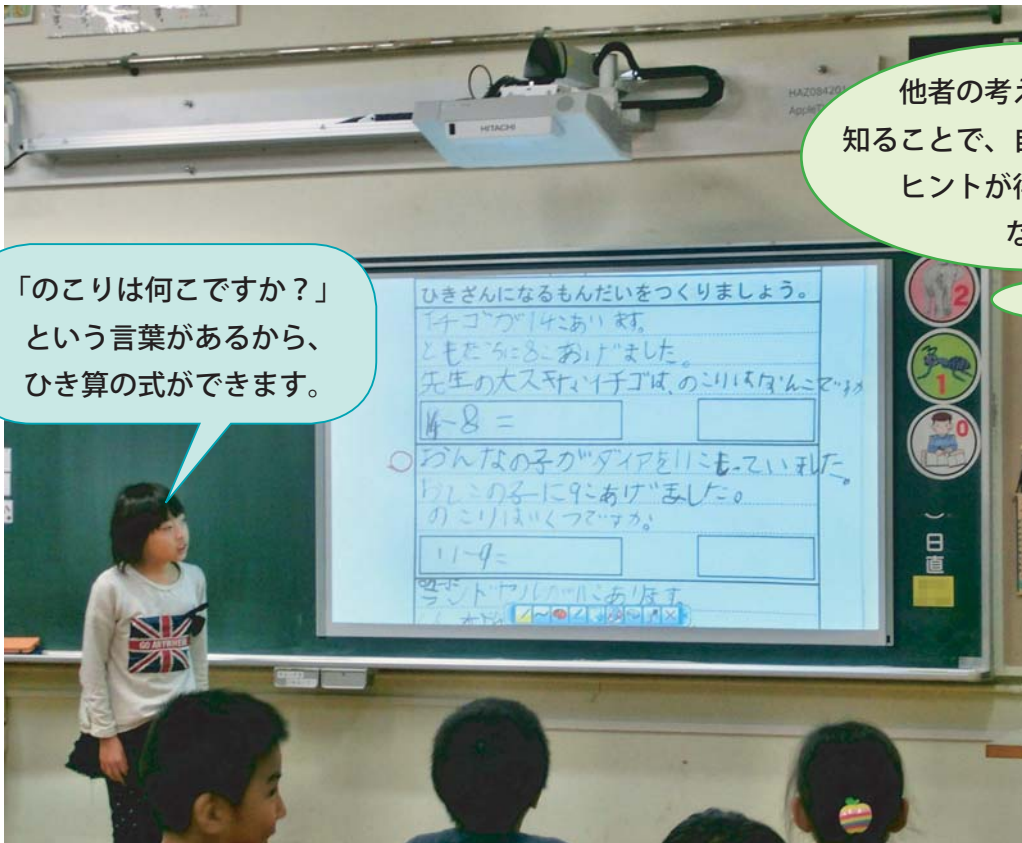 HITACHI
HAZ08420
Apple
他者の考え
知ることで、自
ヒントが得
な
「のこりは何こですか？」
という言葉があるから、
ひき算の式ができます。
ひきざんになるもんだいをつくりましょう。
イチゴが14こあります。
ともだちに8こあげました。
先生の大スキなイチゴは、のこりはなんこですか
14-8=
おんなの子がダイアを11こもっていました。
おとこの子に9こあげました。
のこりはいくつですか。
11-9=
ランドセルが11こあります
2
1
0
日直
GO ANYWHERE